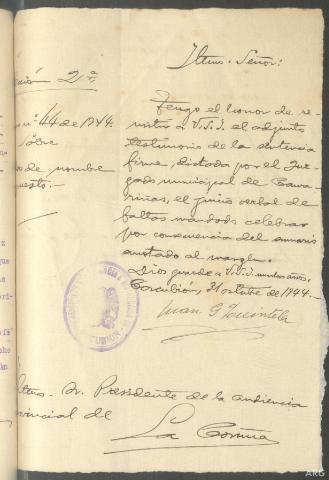 Iltmo. Señor:
2ª.
nº 44 de 1944.
Sobre
de nombre
uesto.-
Tengo el honor de re-
mitir a V.S.I. el adjunto
testimonio de la sentencia
firme, dictada por el Juz-
gado municipal de Cama-
riñas, el juicio verbal de
faltas mandado celebrar
por consecuencia del sumario
anotado al margen.
Dios guarde a V.S.I. muchos años.
Corcubión, 31 octubre de 1944.-
Juan G Quintela
Iltmo. Sr. Presidente de la audiencia
vincial de
La Coruña
CORCUBIÓN
ARG